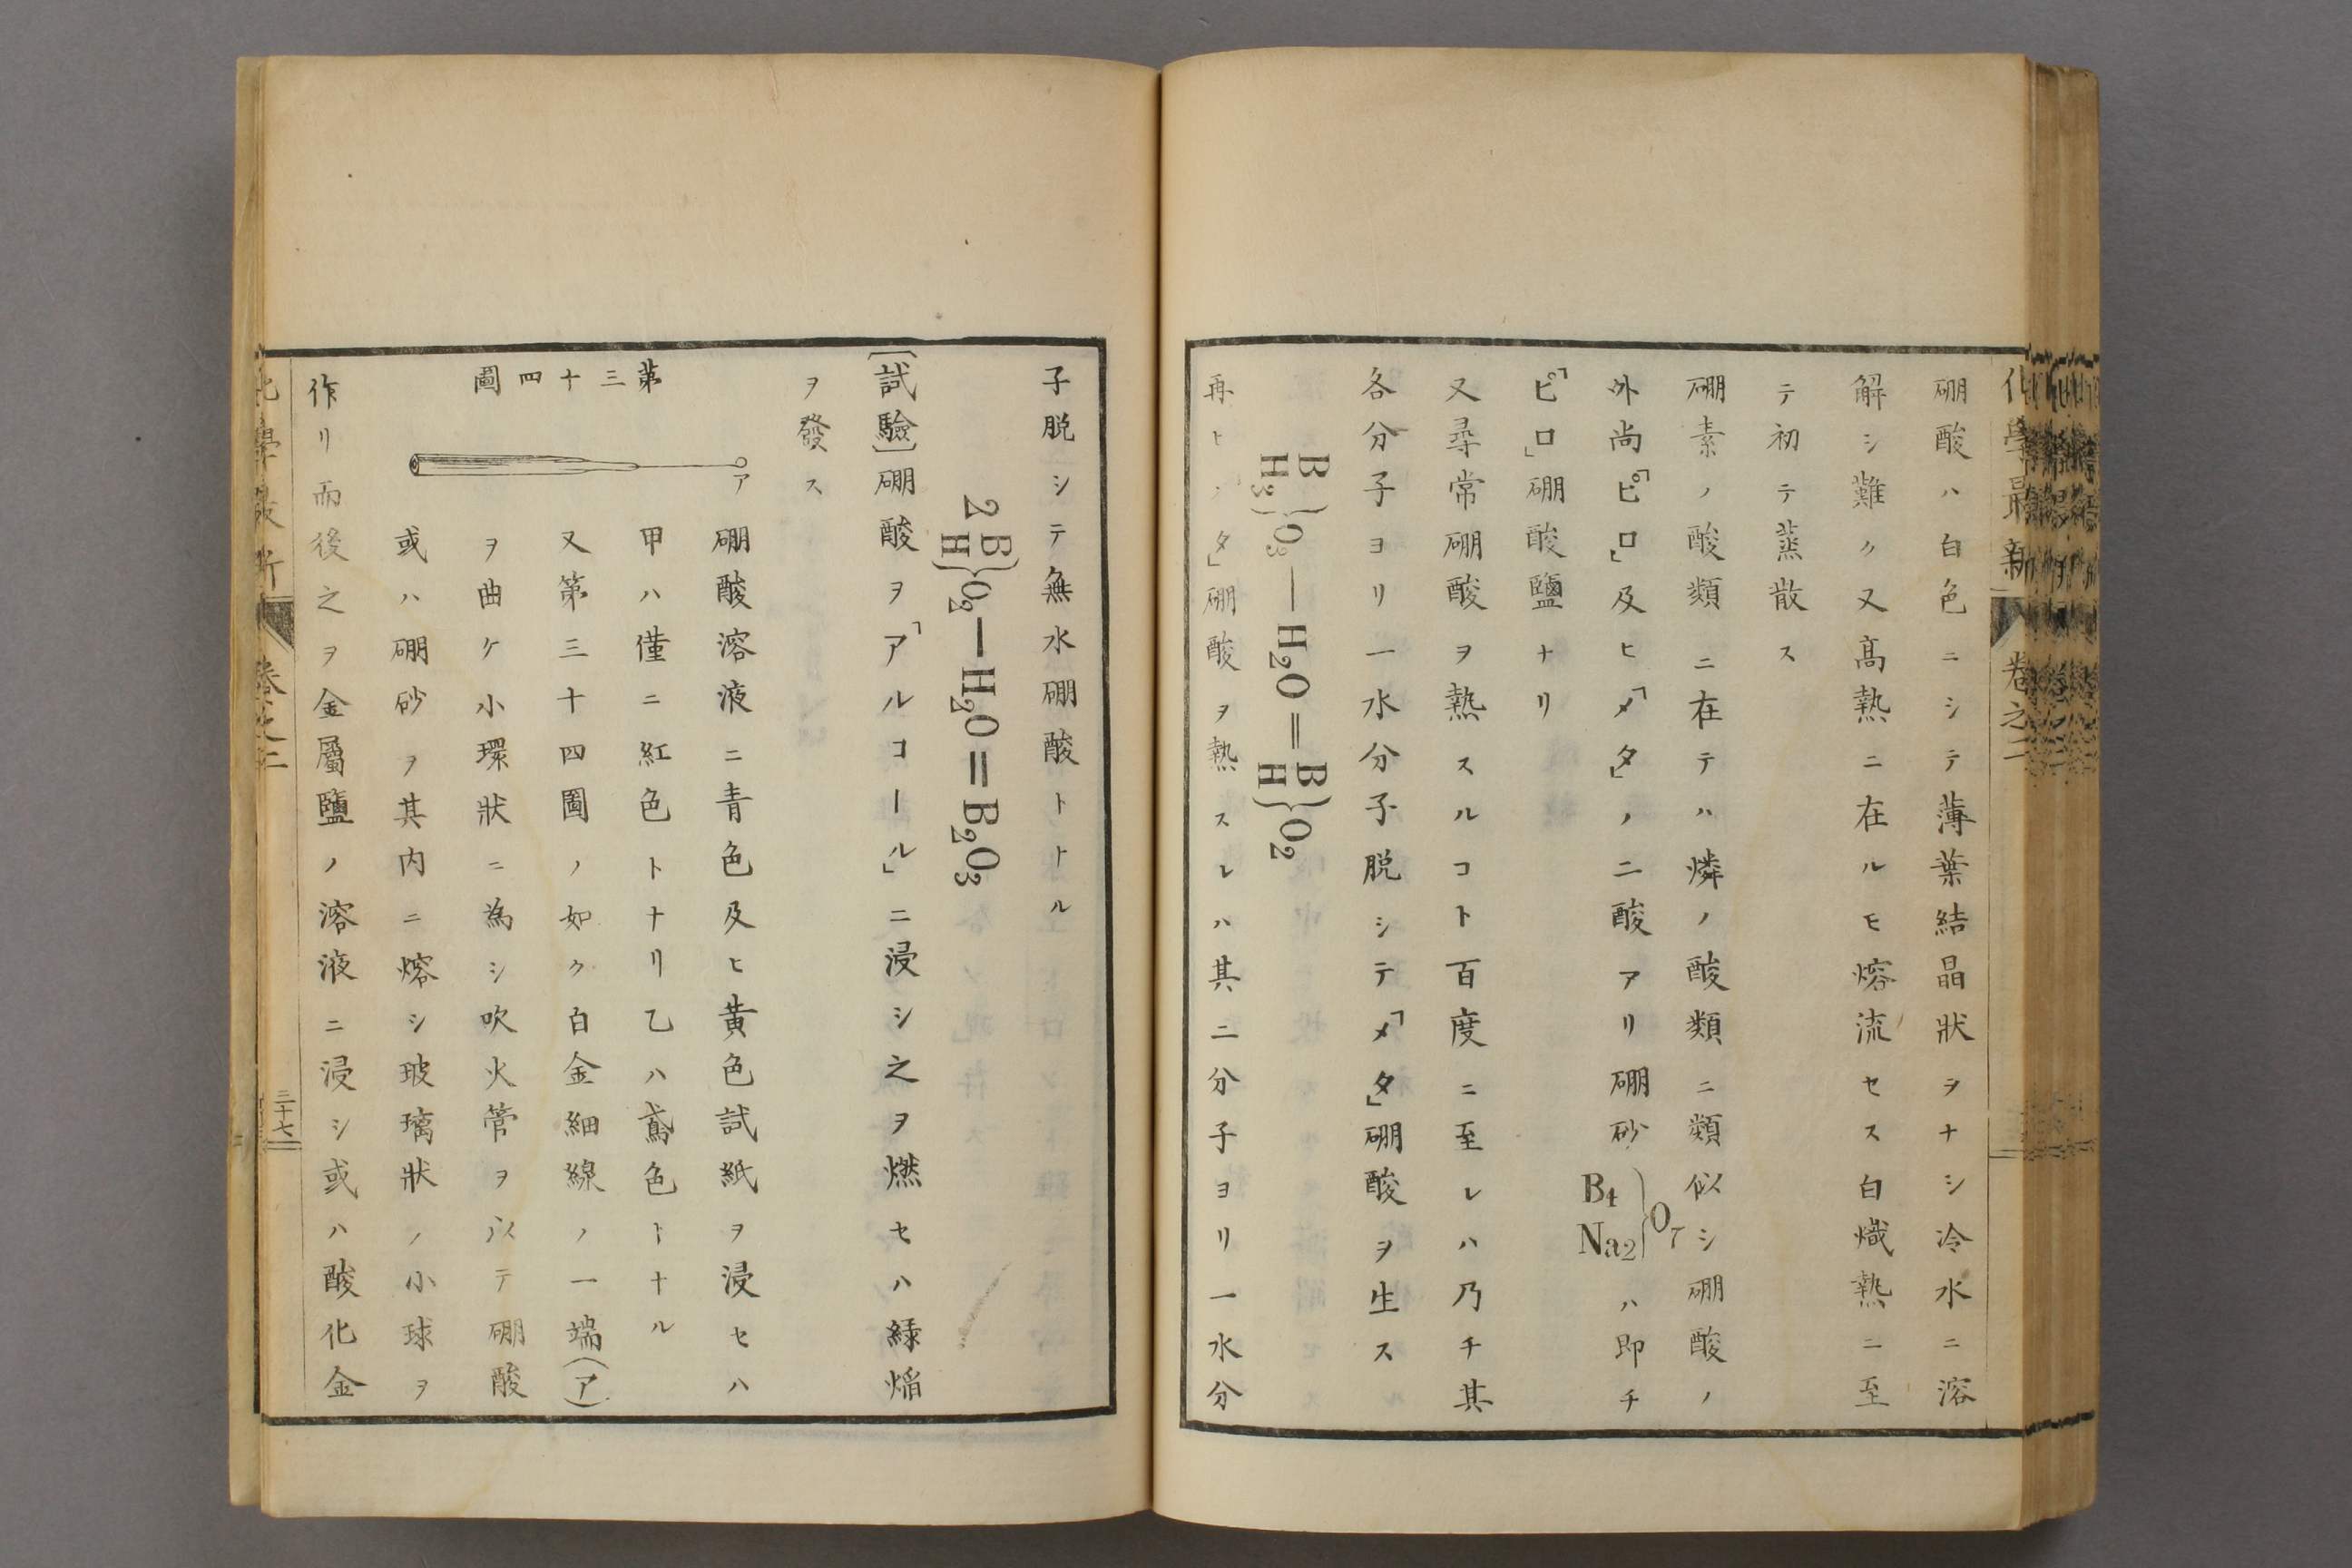 化學最新 卷之二
硼酸ハ白色ニシテ薄葉結晶狀ヲナシ冷水ニ溶
解シ難ク又髙熱ニ在ルモ熔流セス白熾熱ニ至
テ初テ蒸散ス
硼素ノ酸類ニ在テハ燐ノ酸類ニ類似シ硼酸ノ
外尚「ピロ」及ヒ「メタ」ノ二酸アリ硼砂 B4 Na2}O7 ハ即チ
「ピロ」硼酸鹽ナリ
又尋常硼酸ヲ熱スルコト百度ニ至レハ乃チ其
各分子ヨリ一水分子脱シテ「メタ」硼酸ヲ生ス
B H3}O3 — H2O = B H}O2
再ヒ「メタ」硼酸ヲ熱スレハ其二分子ヨリ一水分
子脱シテ無水硼酸トナル
2 B H}O2 — H2O = B2O3
[試驗]硼酸ヲ「アルコール」ニ浸シ之ヲ燃セハ緑焔
ヲ發ス
第三十四圖
ア
硼酸溶液ニ青色及ヒ黄色試紙ヲ浸セハ
甲ハ僅ニ紅色トナリ乙ハ鳶色トナル
又第三十四圖ノ如ク白金細線ノ一端(ア)
ヲ曲ケ小環狀ニ為シ吹火管ヲ以テ硼酸
或ハ硼砂ヲ其内ニ熔シ玻璃狀ノ小球ヲ
作リ而後之ヲ金屬鹽ノ溶液ニ浸シ或ハ酸化金
三十七